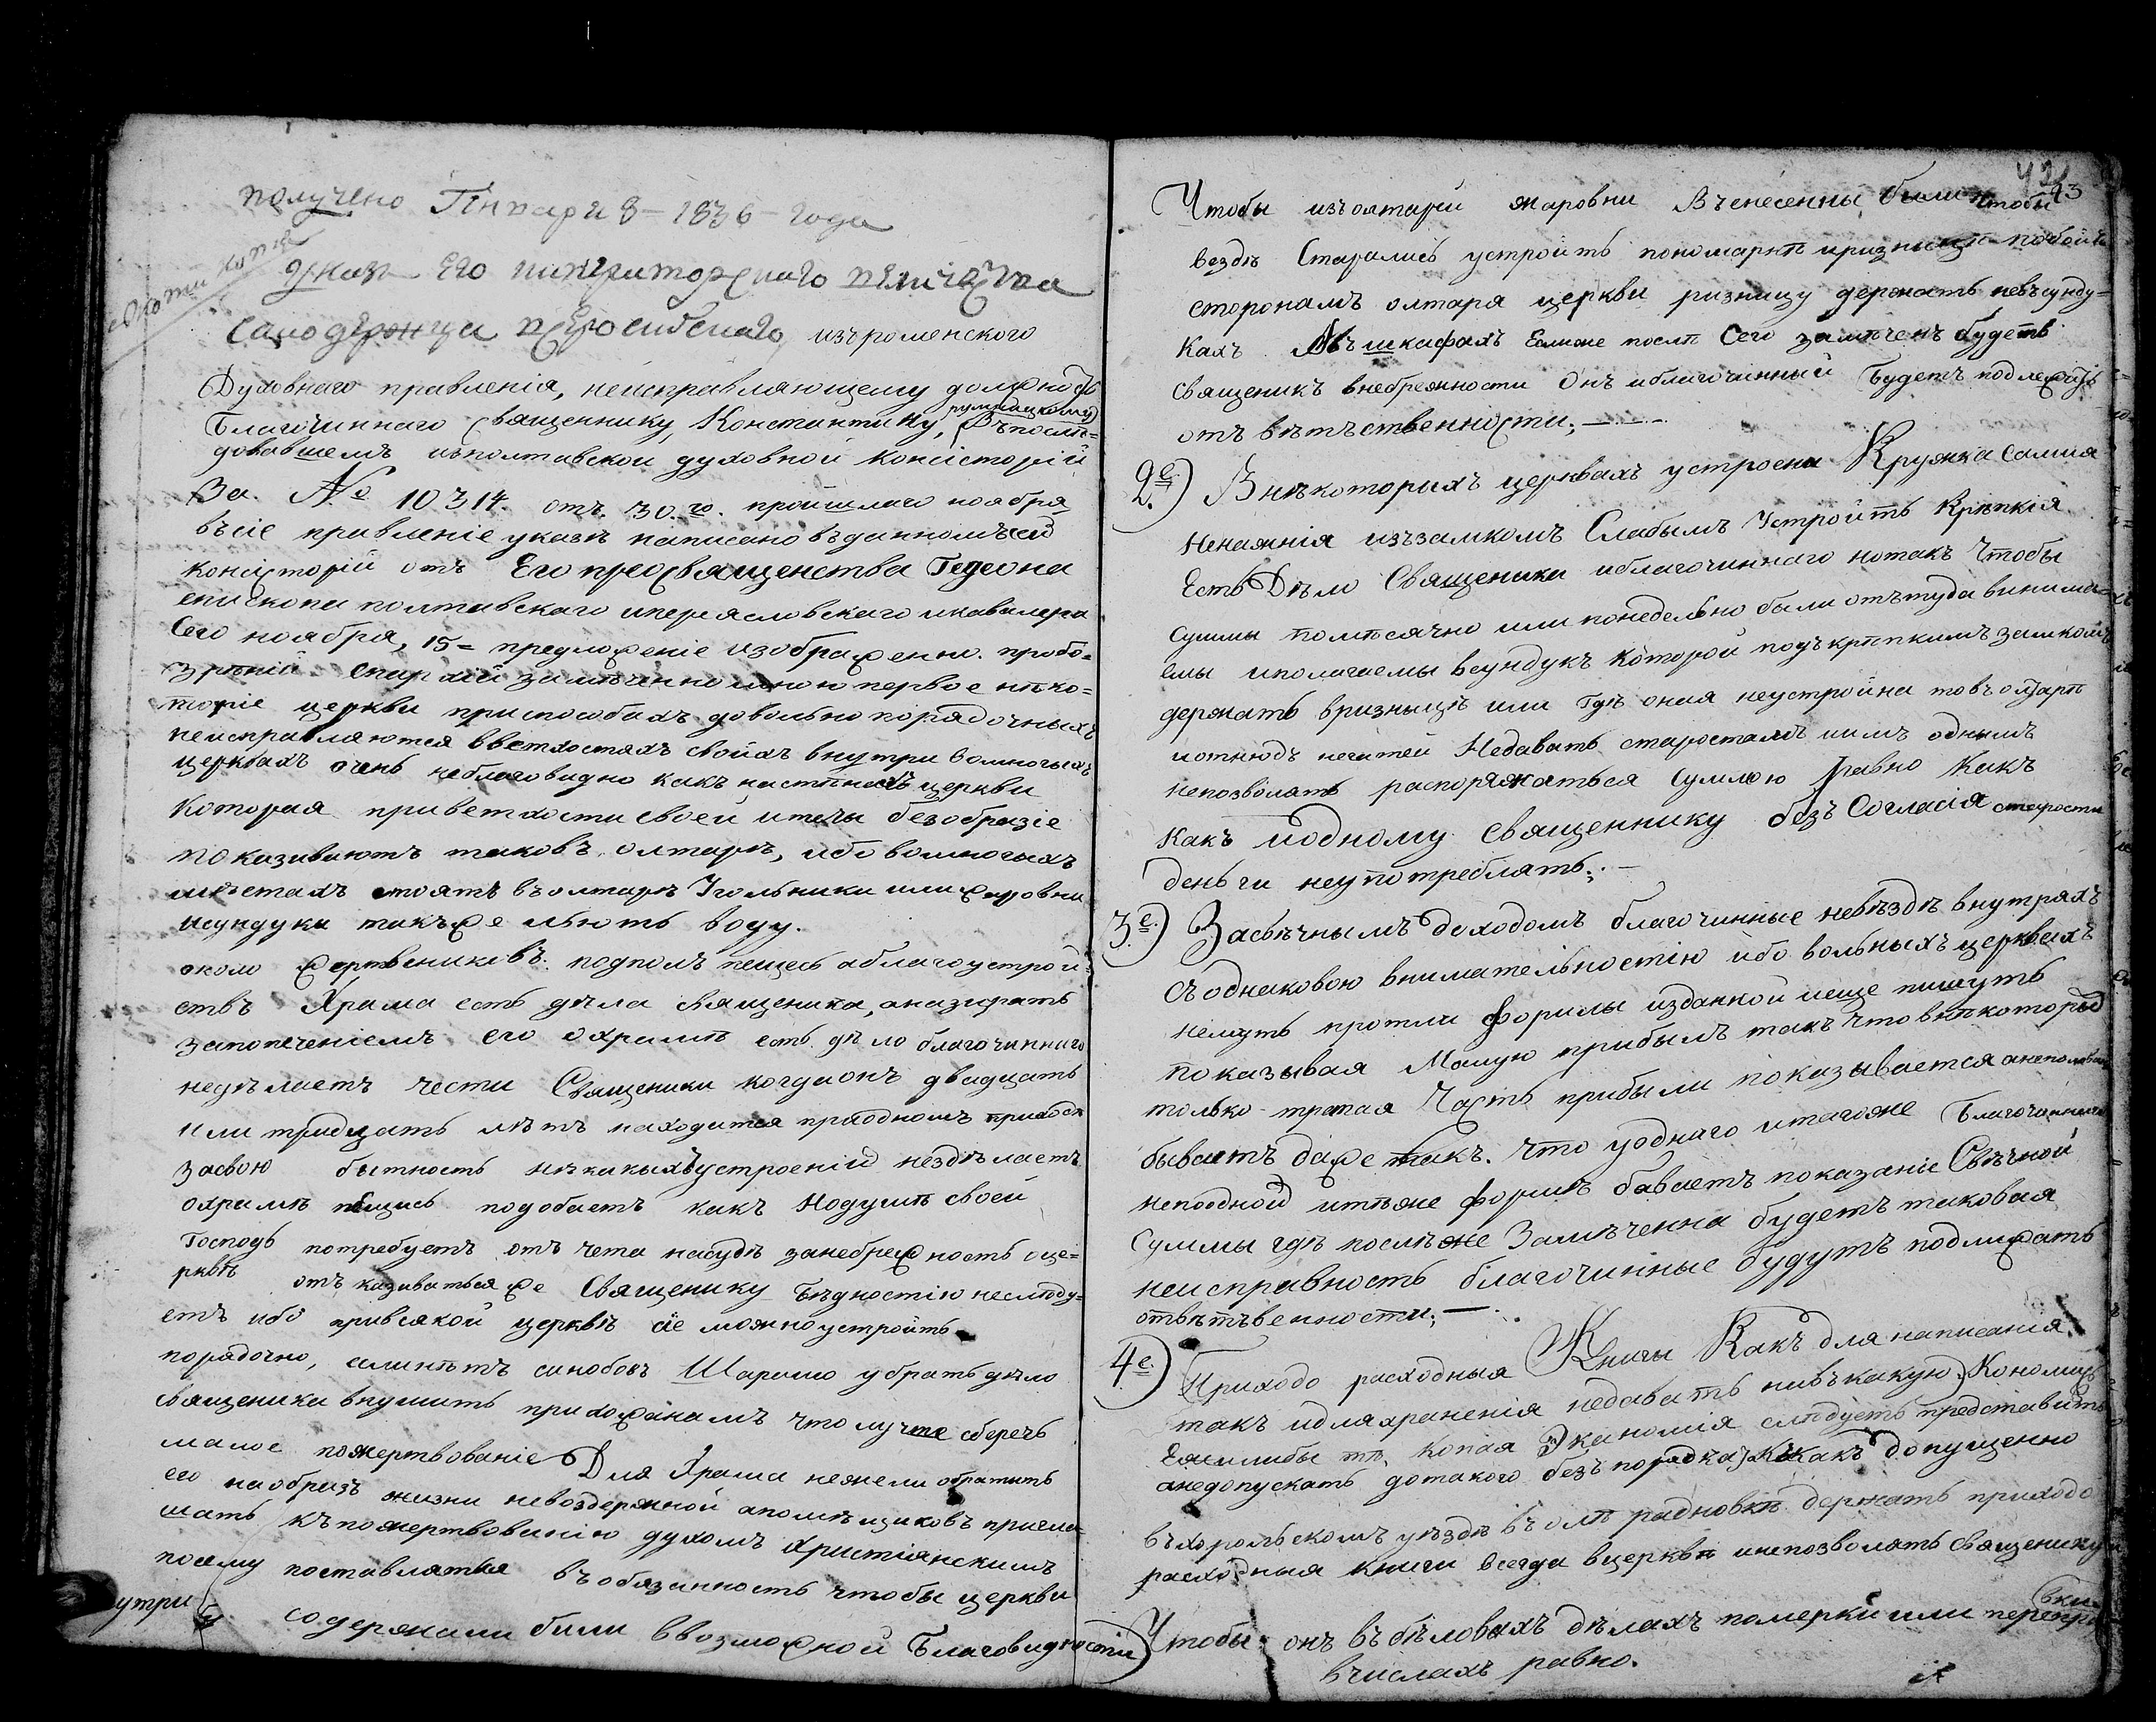 получено Генваря 8 - 1836 - года
копія
Указъ Его императорскаго величества
Самодержца всероссийскаго, изъроменского
Духовнаго правленія, неисправляющему должность
Благочиннаго Священнику, Константину, румницкому, Въпослѣ=
довавшемъ изполтавской духовной Консисторій
За. № 10314. отъ. 30.го. прошлаго ноября
въсіе правленіе указѣ написано въданномъ сій
консисторій отъ Его преосвященства Гедеона
епископа полтавского ипереясловского икавалера
Сего ноября, 15 = предложеніе изображенно. пробо=
зрѣній Епархій замѣченно мною первое нѣко=
торіе церкви приспособахъ довольно порядочныхъ
неисправляются вветхостяхъ своихъ внутри вомногихъ
церквахъ очень неблаговидно какъ настѣнахъ церкви
Которая приветхости своей итечи безобразіе
показиваютъ таковъ олтарѣ, ибо вомногихъ
мѣстахъ стоятъ въолтарѣ Угольники или жаровни
исундуки такъже льютъ воду.
около жертвениковъ подполъ пещесь облагоустрой=
ствѣ Храма есть дѣла священика, аназирать
запопеченіемъ его охрамѣ есть дѣло благочиннаго
недѣлаетъ чести Священика когдаонъ двадцать
или тридцать лѣтъ находится приодномъ приходѣ
засвою бытность нѣкакыхъ устроеній нездѣлаетъ
охрамѣ пещись подобаетъ какъ Нодушѣ своей
Господь потребуетъ отъ чета насудѣ занебрежность оце=
рквѣ отъказиваться же Священику Бѣдностію неслѣду=
етъ ибо привсякой церквѣ сіе можно устройть
порядочно, еслинѣтъ синобовъ Шарамо убрать дѣло
священика внушить прихожанамъ что лучше сберечь
малое пожертвованіе Для Храма нежели обратить
его наобразъ жизни невоздержной апомѣщиковъ пригла=
шать къпожертвованію духомъ христіянскимъ
посему поставляться въобязанность чтобы церкви
утри содержали были ввозможной Благовидности
42
93
Чтобы изъолтарей жаровни Вънесенны были Чтобы
вездѣ Старались устройть пономарнѣ иризныцѣ пообоймъ
сторонамъ олтаря церкви ризницу держать невъсунду=
Кахъ Авъшкафахъ Еслиже послѣ Сего замѣченъ будетъ
священикъ внебрежности Онъ иблагочинный Будетъ подлежать
отъвѣтъственности; —
2е.) Внѣкоторыхъ церквахъ устроена Кружка самыя
Ненажнія изъзамкомъ Слабымъ Устройть Крѣпкія
Есть Дѣло Священика иблагочиннаго нотакъ Чтобы
суммы помѣсячно или понедельно были отътуда винима=
емы иполагаемы всундукъ которой подъкрѣпкимъ замкомъ
держать вризныцѣ или гдѣ оная неустройна товъолтарѣ
иотнюдъ ключей Недавать старостамъ иимъ однымъ
непозволять распоряжаться суммою равно какъ
Какъ иодному священнику безъ Согласія старости
деньги неупотреблять; —
3е.) Засвѣчнымъ доходомъ благочинные невѣздѣ внутряхъ
Съоднаковою внимательностію ибо вольныхъ церквахъ
немуть протли формы изданкой иеще пишуть
показывая Малую прибыль такъ что внѣкоторыхъ
только третая Часть прибыли показывается анеполовина
бываетъ даже такъ. что уоднаго итагоже Благочиннаго
непоодной итѣяже формѣ бываетъ показаніе Свѣчной
Суммы гдѣ послѣже Замѣченна будетъ таковая
неисправность благочинные будутъ подлежать
отвѣтъвенности; —
4е.) Приходо расходныя Книги Какъ для написанія
такъ идляхраненія недавать нивъкакую Кономію
Еяилибы тѣ копая Экономія слѣдуетъ представить
анедопускать дотакого безъпорядка Какъ допущенно
въхорольскомъ уѣздѣ въолѣ радновкѣ держать приходо
расходная книги всегда вцерквѣ инепозволять Священику
Чтобы онъ въбѣловыхъ дѣлахъ померки или перепра
вчислахъ равно.